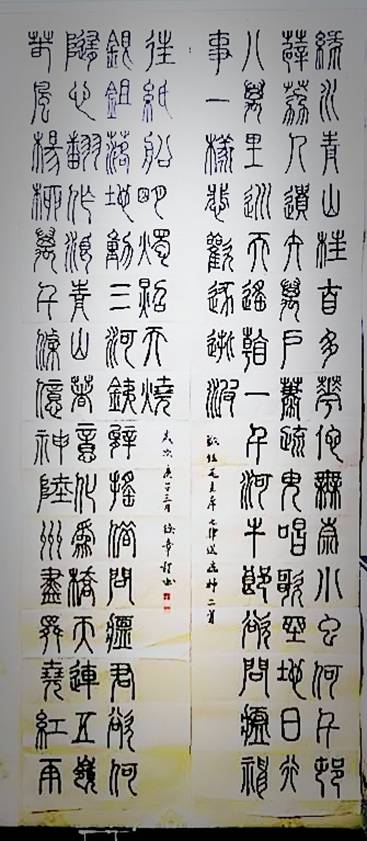 綠水青山枉自多華佗無奈小蟲何千村
薜荔人遺矢萬戶蕭疏鬼唱歌坐地日行
八萬里巡天遙看一千河牛郎欲問瘟神
事一樣悲歡逐逝波
敬錄毛主席七律送瘟神二首
春風楊柳萬千條億神陸州盡舜堯紅雨
隨心翻作浪青山著意化為橋天連五嶺
銀鋤落地動三河鐵臂搖借問瘟君欲何
往紙船明燭照天燒
歲次庚子三月